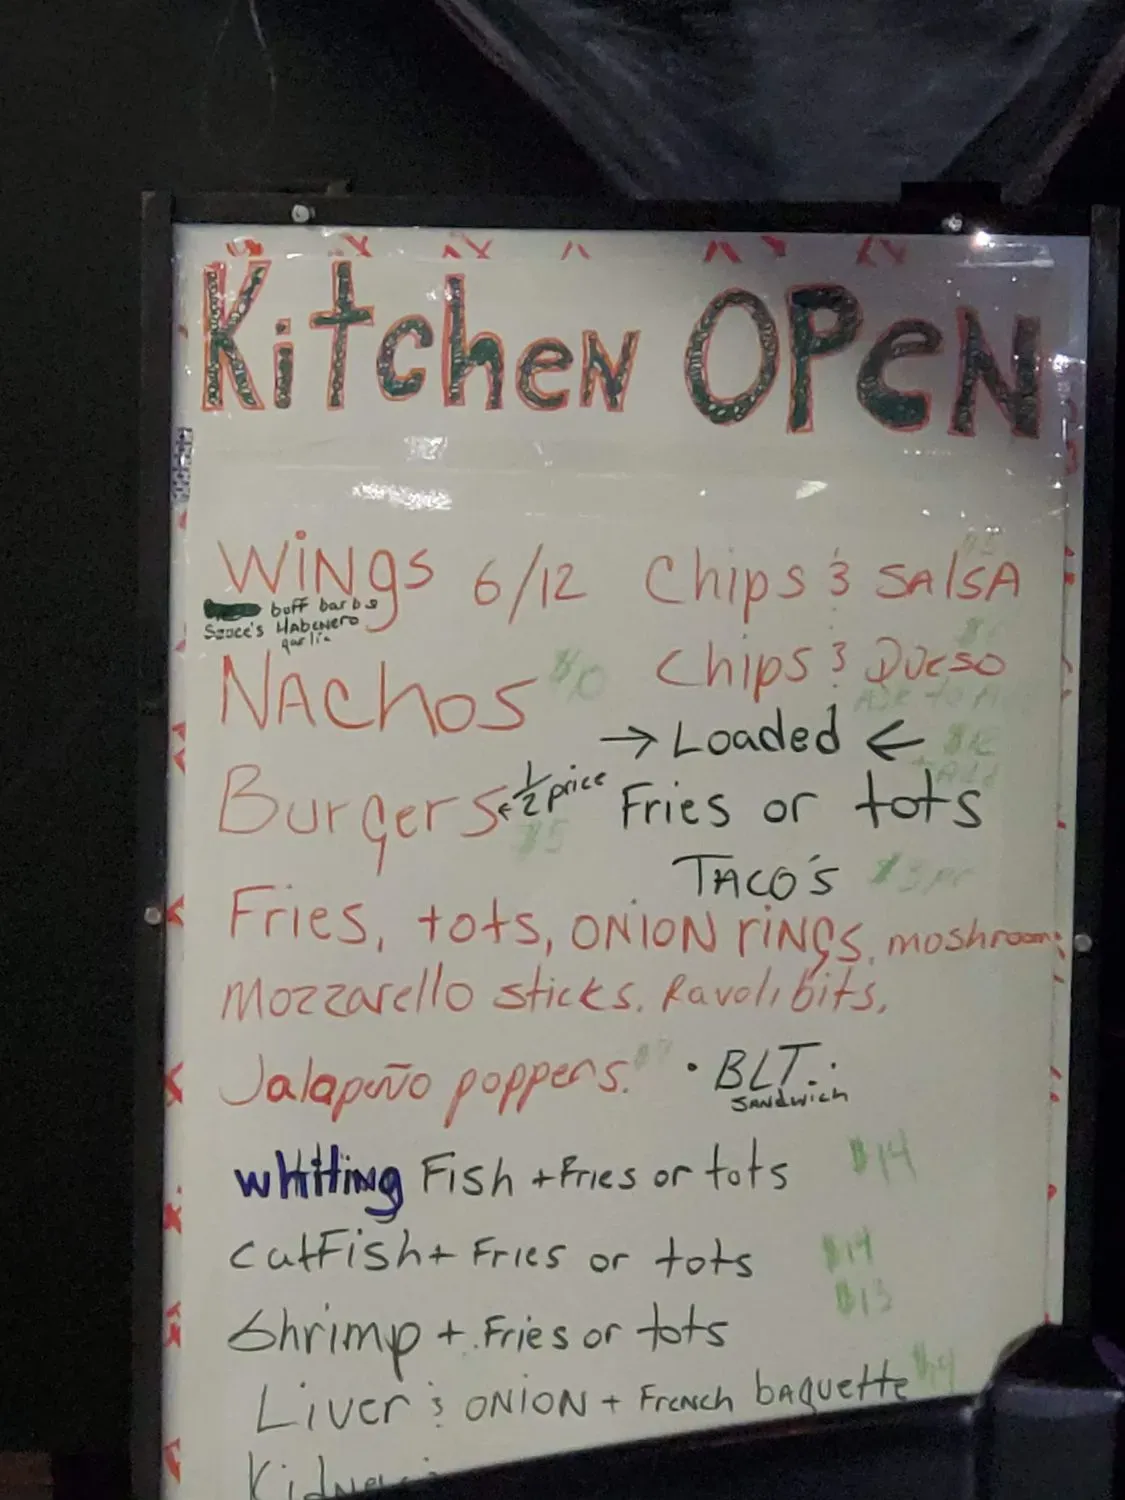 Kitchen OPEN
WiNgs 6/12 Chips & SAlSA
buff barbs
Sauce's HAbENERO
garlic
NAchos $10 Chips & Queso
→ Loaded ←
Burgers ← 1/2 price Fries or tots
$5
TACO'S $3
Fries, tots, ONiON riNgs, moshrooms
Mozzarello sticks. Ravoli bits,
Jalapeño poppers. $7 · BLT.
SANdwich
whiting Fish + Fries or tots $14
catFish + Fries or tots $14
$13
Shrimp + Fries or tots
Liver & ONiON + FrENch baquette